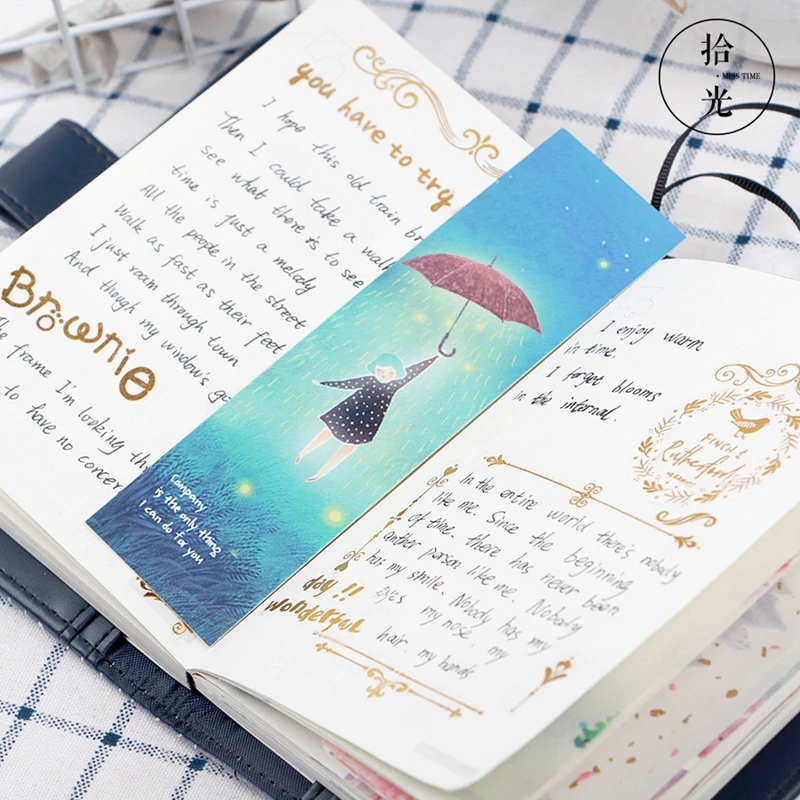 拾光
· MISS TIME
you have to try
I hope this old train br
Then I could take a walk
see what there is to see
time is just a melody
All the people in the street
walk as fast as their feet
I just roam through town
And though my window's go
Brownie
The frame I'm looking th
to have no concer
Company
is the only thing
I can do for you
I enjoy warm
in time.
I forget blooms
in the internal.
FINCH &
Rutherford
In the entire world there's nobody
like me. Since the beginning
of time. there has never been
anther person like me. Nobody
has my smile. Nobody has my
eyes my nose. my
hair my hands
day!!
wonderful